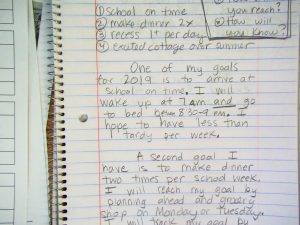 ① School on time
② make dinner 2x
③ recess 1+ per day
④ excited cottage over summer
you reach?
③ How will
you know?
One of my goals
for 2019 is to arrive at
school on time. I will
wake up at 7am and go
to bed 8:30-9 PM. I
hope to have less than
1 tardy per week.
A second goal I
have is to make dinner
two times per school week.
I will reach my goal by
planning ahead and grocery
shop on Monday or Tuesday.
I will track my goal by